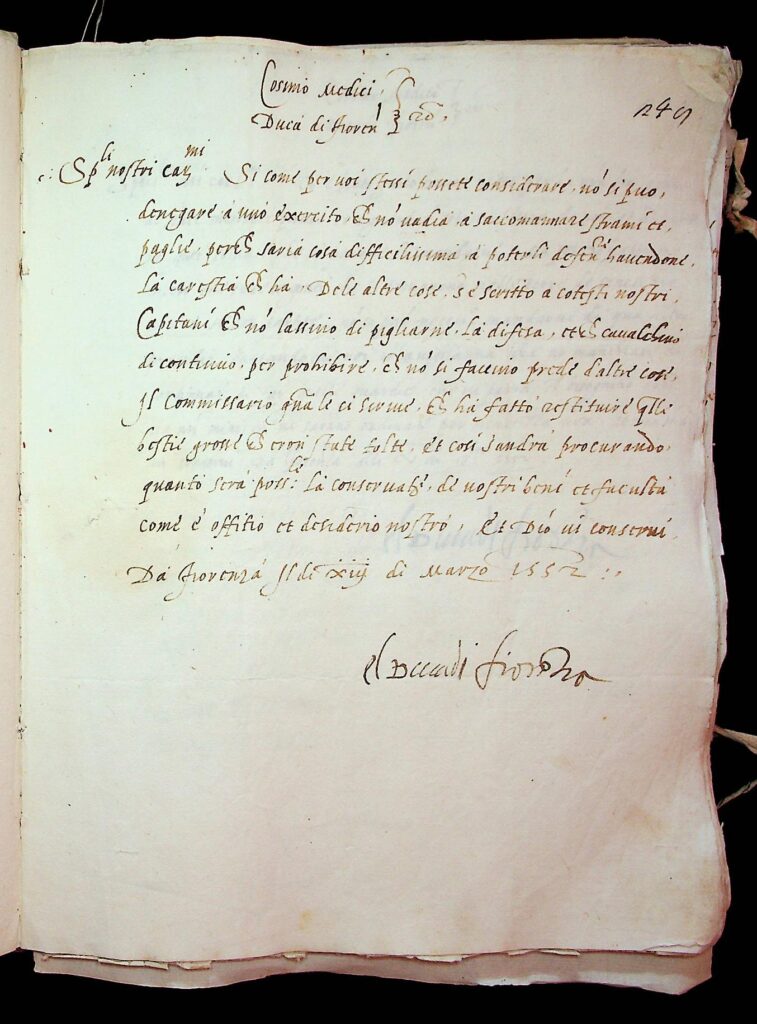 Cosimo Medici
Duca di Fioren
249
Sp.li nostri car.mi Si come per voi stessi possete considerare, nó si puo,
denegare à unó exercito, ch nó vadia, à saccomannare strami et
paglie, perch saria cosa difficilissima à poterli defen havendone,
La carestia ch ha. Dele altre cose, s'e scritto à cotesti nostri,
Capitani ch nó lassino di pigliarne, la difesa, et ch cavalchino
di continuo, per prohibire, ch nó si faccino prede d'altre cose,
Il Commissario quale ci scrive, ch ha fattó restituire qlle
bestie grosse ch eron state tolte, et cosi s'andrà procurando,
quantó serà poss.le la conservaté, de nostri beni et facultà
come è offitio et desiderio nostró, Et Dió vi conservi.
Dà Fiorenzà Il di xiij di Marzó 1552
El Duca di Fiorenza